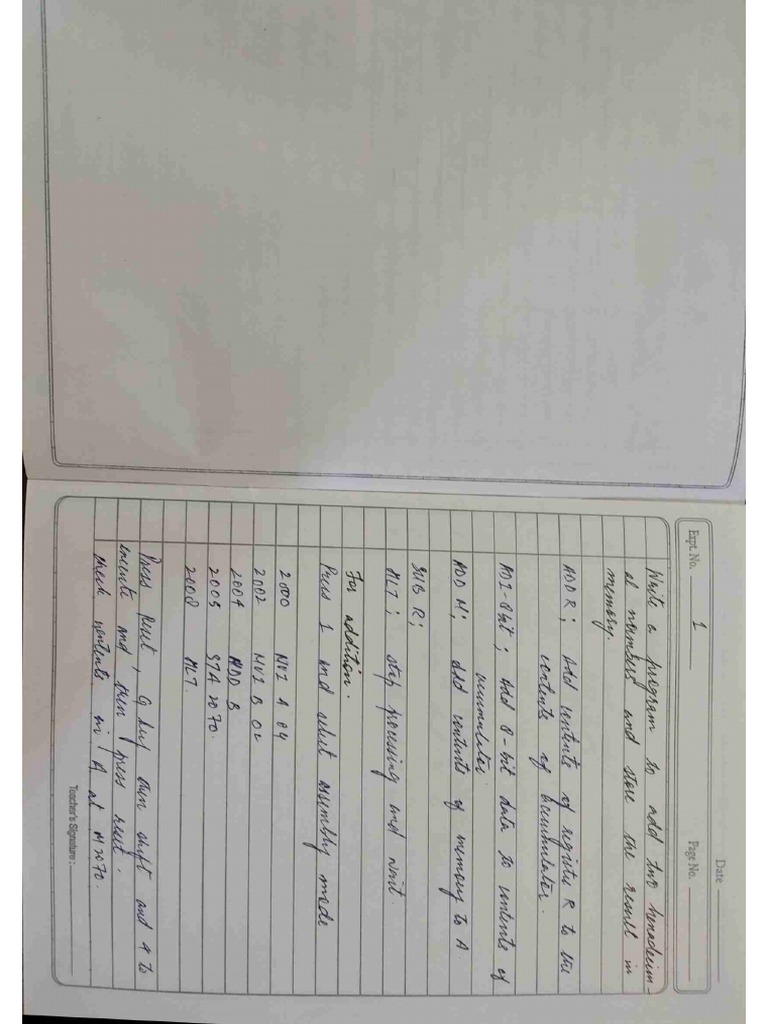 Date
Expt. No. 1
Page No.
Write a program to add two hexadecim-
al numbers and store the result in
memory.
ADD R; Add contents of register R to the
contents of accumulator.
ADI-8bit; Add 8-bit data to contents of
accumulator.
ADD M; add contents of memory to A
SUB R;
HLT; stop processing and wait.
For addition.
Press 1 and select assembly mode
2000 MVI A 04
2002 MVI B 02
2004 ADD B
2005 STA 2070.
2008 HLT.
Press reset, G key then shift and 4 to
execute and then press reset.
check contents in A at M2070.
Teacher's Signature :